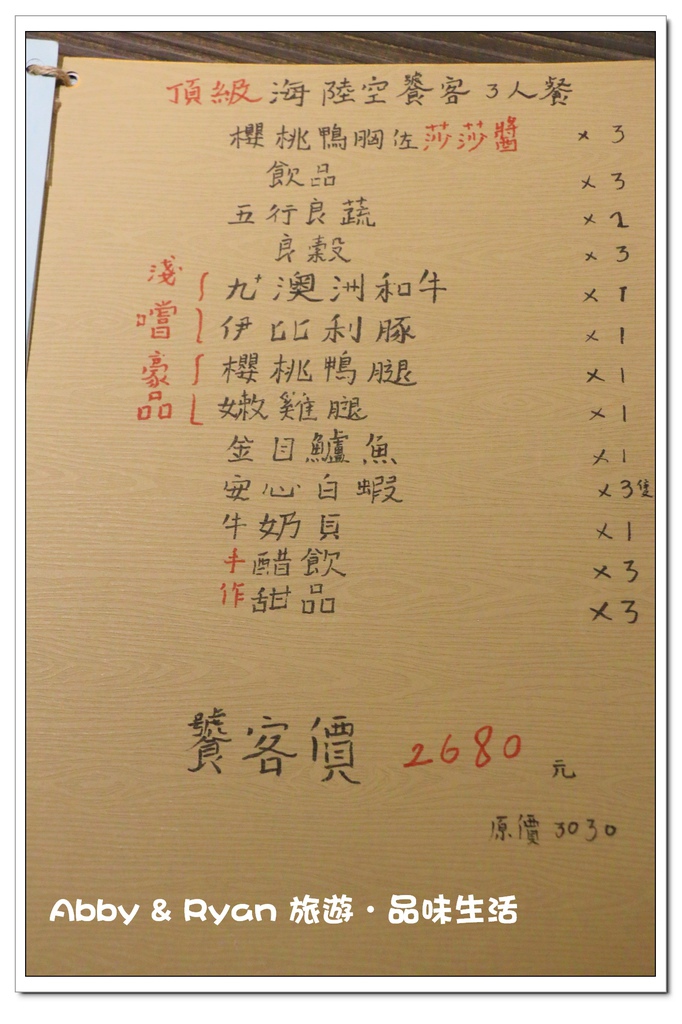 頂級海陸空饕客3人餐
櫻桃鴨胸佐莎莎醬 x 3
飲品 x 3
五行良蔬 x 2
良穀 x 3
淺嚐豪品
九⁺澳洲和牛 x 1
伊比利豚 x 1
櫻桃鴨腿 x 1
嫩雞腿 x 1
金目鱸魚 x 1
安心白蝦 x 3隻
牛奶貝 x 1
手作
醋飲 x 3
甜品 x 3
饕客價 2680 元
原價 3030
Abby & Ryan 旅遊・品味生活